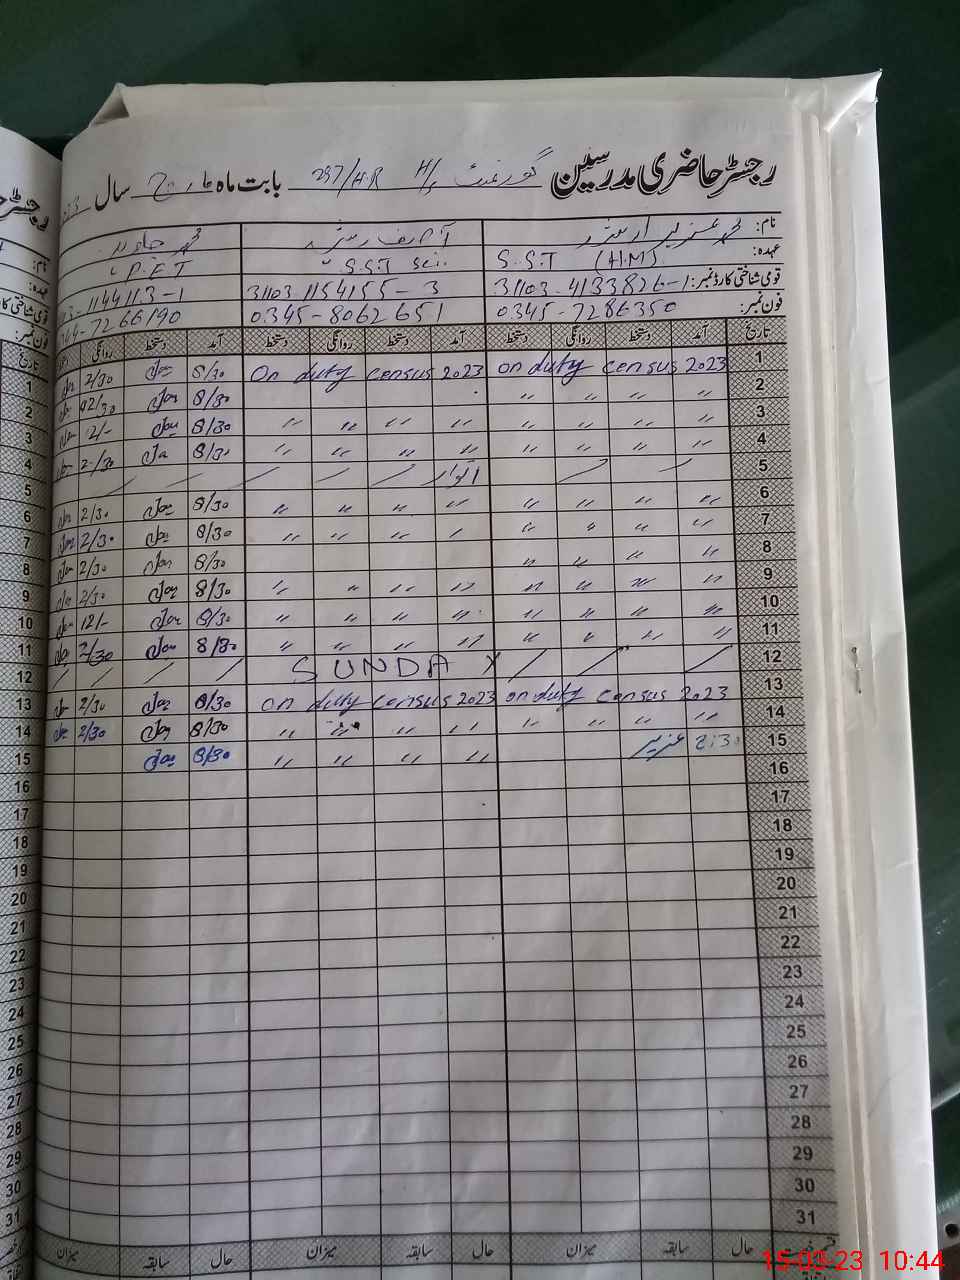 رجسٹر حاضری مدرسین گورنمنٹ H/S 297/HR بابت ماہ مارچ سال
نام: محمد عزیر ارشد آصف رشید محمد جاوید
عہدہ: S.S.T (H.M) S.S.T Sci. P.E.T
قومی شناختی کارڈ نمبر: 31103-4133826-1 31103 1154155-3 1144113-1
فون نمبر: 0345-7286350 0345-8062651 7266190
تاریخ آمد دستخط روانگی دستخط آمد دستخط روانگی دستخط آمد دستخط روانگی
1 on duty census 2023 on duty census 2023 8/30 Jav 2/30
2 " " " " 8/30 Jav 12/30
3 " " " " " " " " 8/30 Jav 12/-
4 " " " " " " " " 8/30 Ja 2/30
5 اتوار
6 " " " " " " " " 8/30 Jav 2/30
7 " " " " " " " " 8/30 Jav 2/30
8 " " " " 8/30 Jav 2/30
9 " " " " " " " " 8/30 Jav 2/30
10 " " " " " " " " 8/30 Jav 12/-
11 " " " " " " " " 8/30 Jav 2/30
12 SUNDAY
13 on duty census 2023 on duty census 2023 8/30 Jav 2/30
14 " " " " " " " " 8/30 Jav 2/30
15 عزیر " " " " 8/30 Jav
16
17
18
19
20
21
22
23
24
25
26
27
28
29
30
31
حال سابقہ میزان حال سابقہ میزان حال سابقہ میزان
15-03-23 10:44